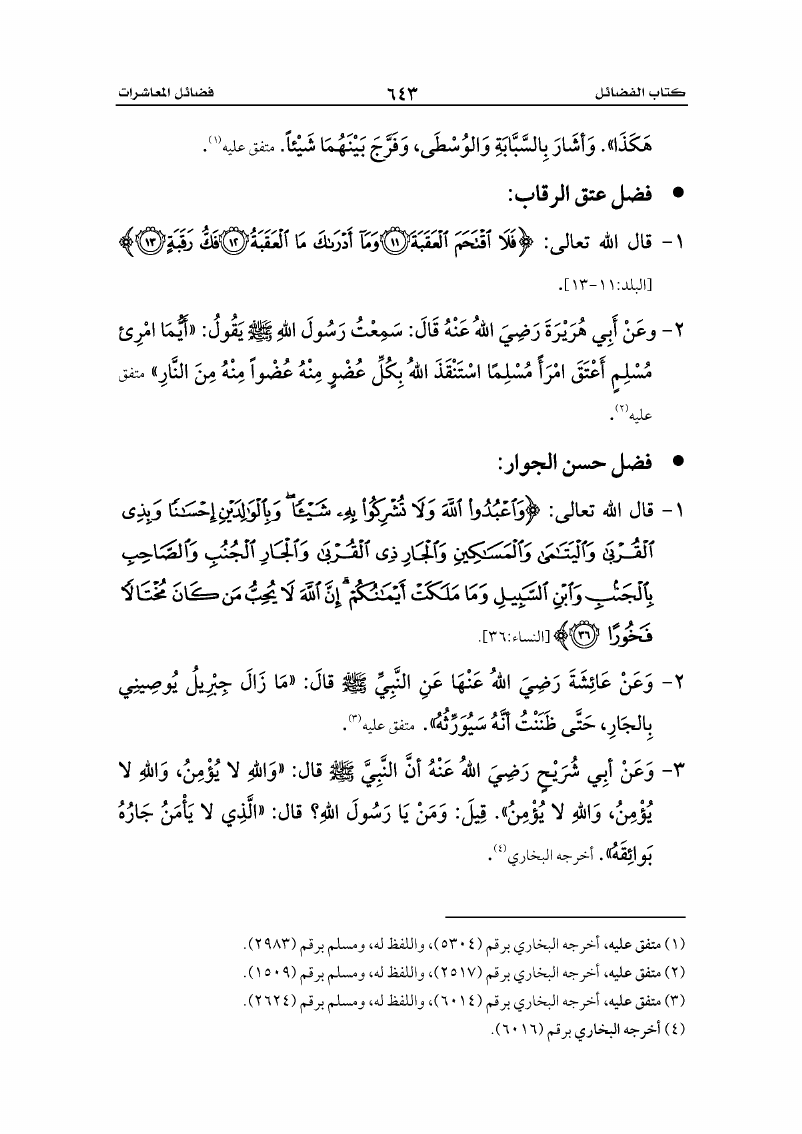 كتاب الفضائل ٦٤٣ فضائل المعاشرات
هَكَذَا». وَأشَارَ بِالسَّبَّابَةِ وَالوُسْطَى، وَفَرَّجَ بَيْنَهُمَا شَيْئاً. متفق عليه(١).
• فضل عتق الرقاب:
١- قال الله تعالى: ﴿فَلَا ٱقْتَحَمَ ٱلْعَقَبَةَ ۝١١ وَمَآ أَدْرَىٰكَ مَا ٱلْعَقَبَةُ ۝١٢ فَكُّ رَقَبَةٍ ۝١٣﴾
[البلد:١١-١٣].
٢- وعَنْ أبِي هُرَيْرَةَ رَضِيَ اللهُ عَنْهُ قَالَ: سَمِعْتُ رَسُولَ اللهِ ﷺ يَقُولُ: «أَيُّمَا امْرِئ
مُسْلِمٍ أَعْتَقَ امْرَأً مُسْلِمًا اسْتَنْقَذَ اللهُ بِكُلِّ عُضْوٍ مِنْهُ عُضْواً مِنْهُ مِنَ النَّارِ» متفق
عليه(٢).
• فضل حسن الجوار:
١- قال الله تعالى: ﴿وَٱعْبُدُوا۟ ٱللَّهَ وَلَا تُشْرِكُوا۟ بِهِۦ شَيْـًٔا ۖ وَبِٱلْوَٰلِدَيْنِ إِحْسَـٰنًا وَبِذِى
ٱلْقُرْبَىٰ وَٱلْيَتَـٰمَىٰ وَٱلْمَسَـٰكِينِ وَٱلْجَارِ ذِى ٱلْقُرْبَىٰ وَٱلْجَارِ ٱلْجُنُبِ وَٱلصَّاحِبِ
بِٱلْجَنۢبِ وَٱبْنِ ٱلسَّبِيلِ وَمَا مَلَكَتْ أَيْمَـٰنُكُمْ ۗ إِنَّ ٱللَّهَ لَا يُحِبُّ مَن كَانَ مُخْتَالًا
فَخُورًا ۝٣٦﴾ [النساء:٣٦].
٢- وَعَنْ عَائِشَةَ رَضِيَ اللهُ عَنْهَا عَنِ النَّبِيِّ ﷺ قالَ: «مَا زَالَ جِبْرِيلُ يُوصِينِي
بِالجَارِ، حَتَّى ظَنَنْتُ أنَّهُ سَيُوَرِّثُهُ». متفق عليه(٣).
٣- وَعَنْ أبِي شُرَيْحٍ رَضِيَ اللهُ عَنْهُ أنَّ النَّبِيَّ ﷺ قال: «وَاللهِ لا يُؤْمِنُ، وَاللهِ لا
يُؤْمِنُ، وَاللهِ لا يُؤْمِنُ». قِيلَ: وَمَنْ يَا رَسُولَ اللهِ؟ قال: «الَّذِي لا يَأْمَنُ جَارُهُ
بَوائِقَهُ». أخرجه البخاري(٤).
(١) متفق عليه، أخرجه البخاري برقم (٥٣٠٤)، واللفظ له، ومسلم برقم (٢٩٨٣).
(٢) متفق عليه، أخرجه البخاري برقم (٢٥١٧)، واللفظ له، ومسلم برقم (١٥٠٩).
(٣) متفق عليه، أخرجه البخاري برقم (٦٠١٤)، واللفظ له، ومسلم برقم (٢٦٢٤).
(٤) أخرجه البخاري برقم (٦٠١٦).